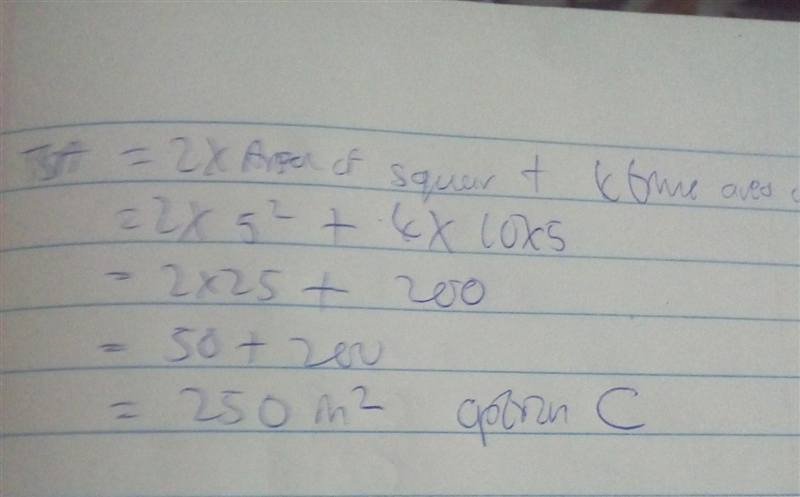 = 2 x Area of squar + 4 time area
= 2 x 5² + 4 x 10x5
= 2x25 + 200
= 50 + 200
= 250 m² option C